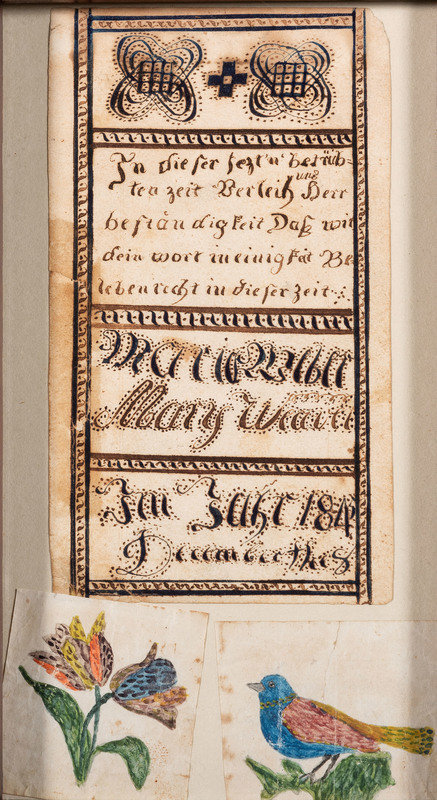 In dieser letzt'n betrüb-
ten zeit Verleih uns Herr
beständigkeit Daß wir
dein wort in einigkeit Be
lebenrecht in dieser Zeit
Marie
Mary Weaver
Im Jahr 184
December the 8